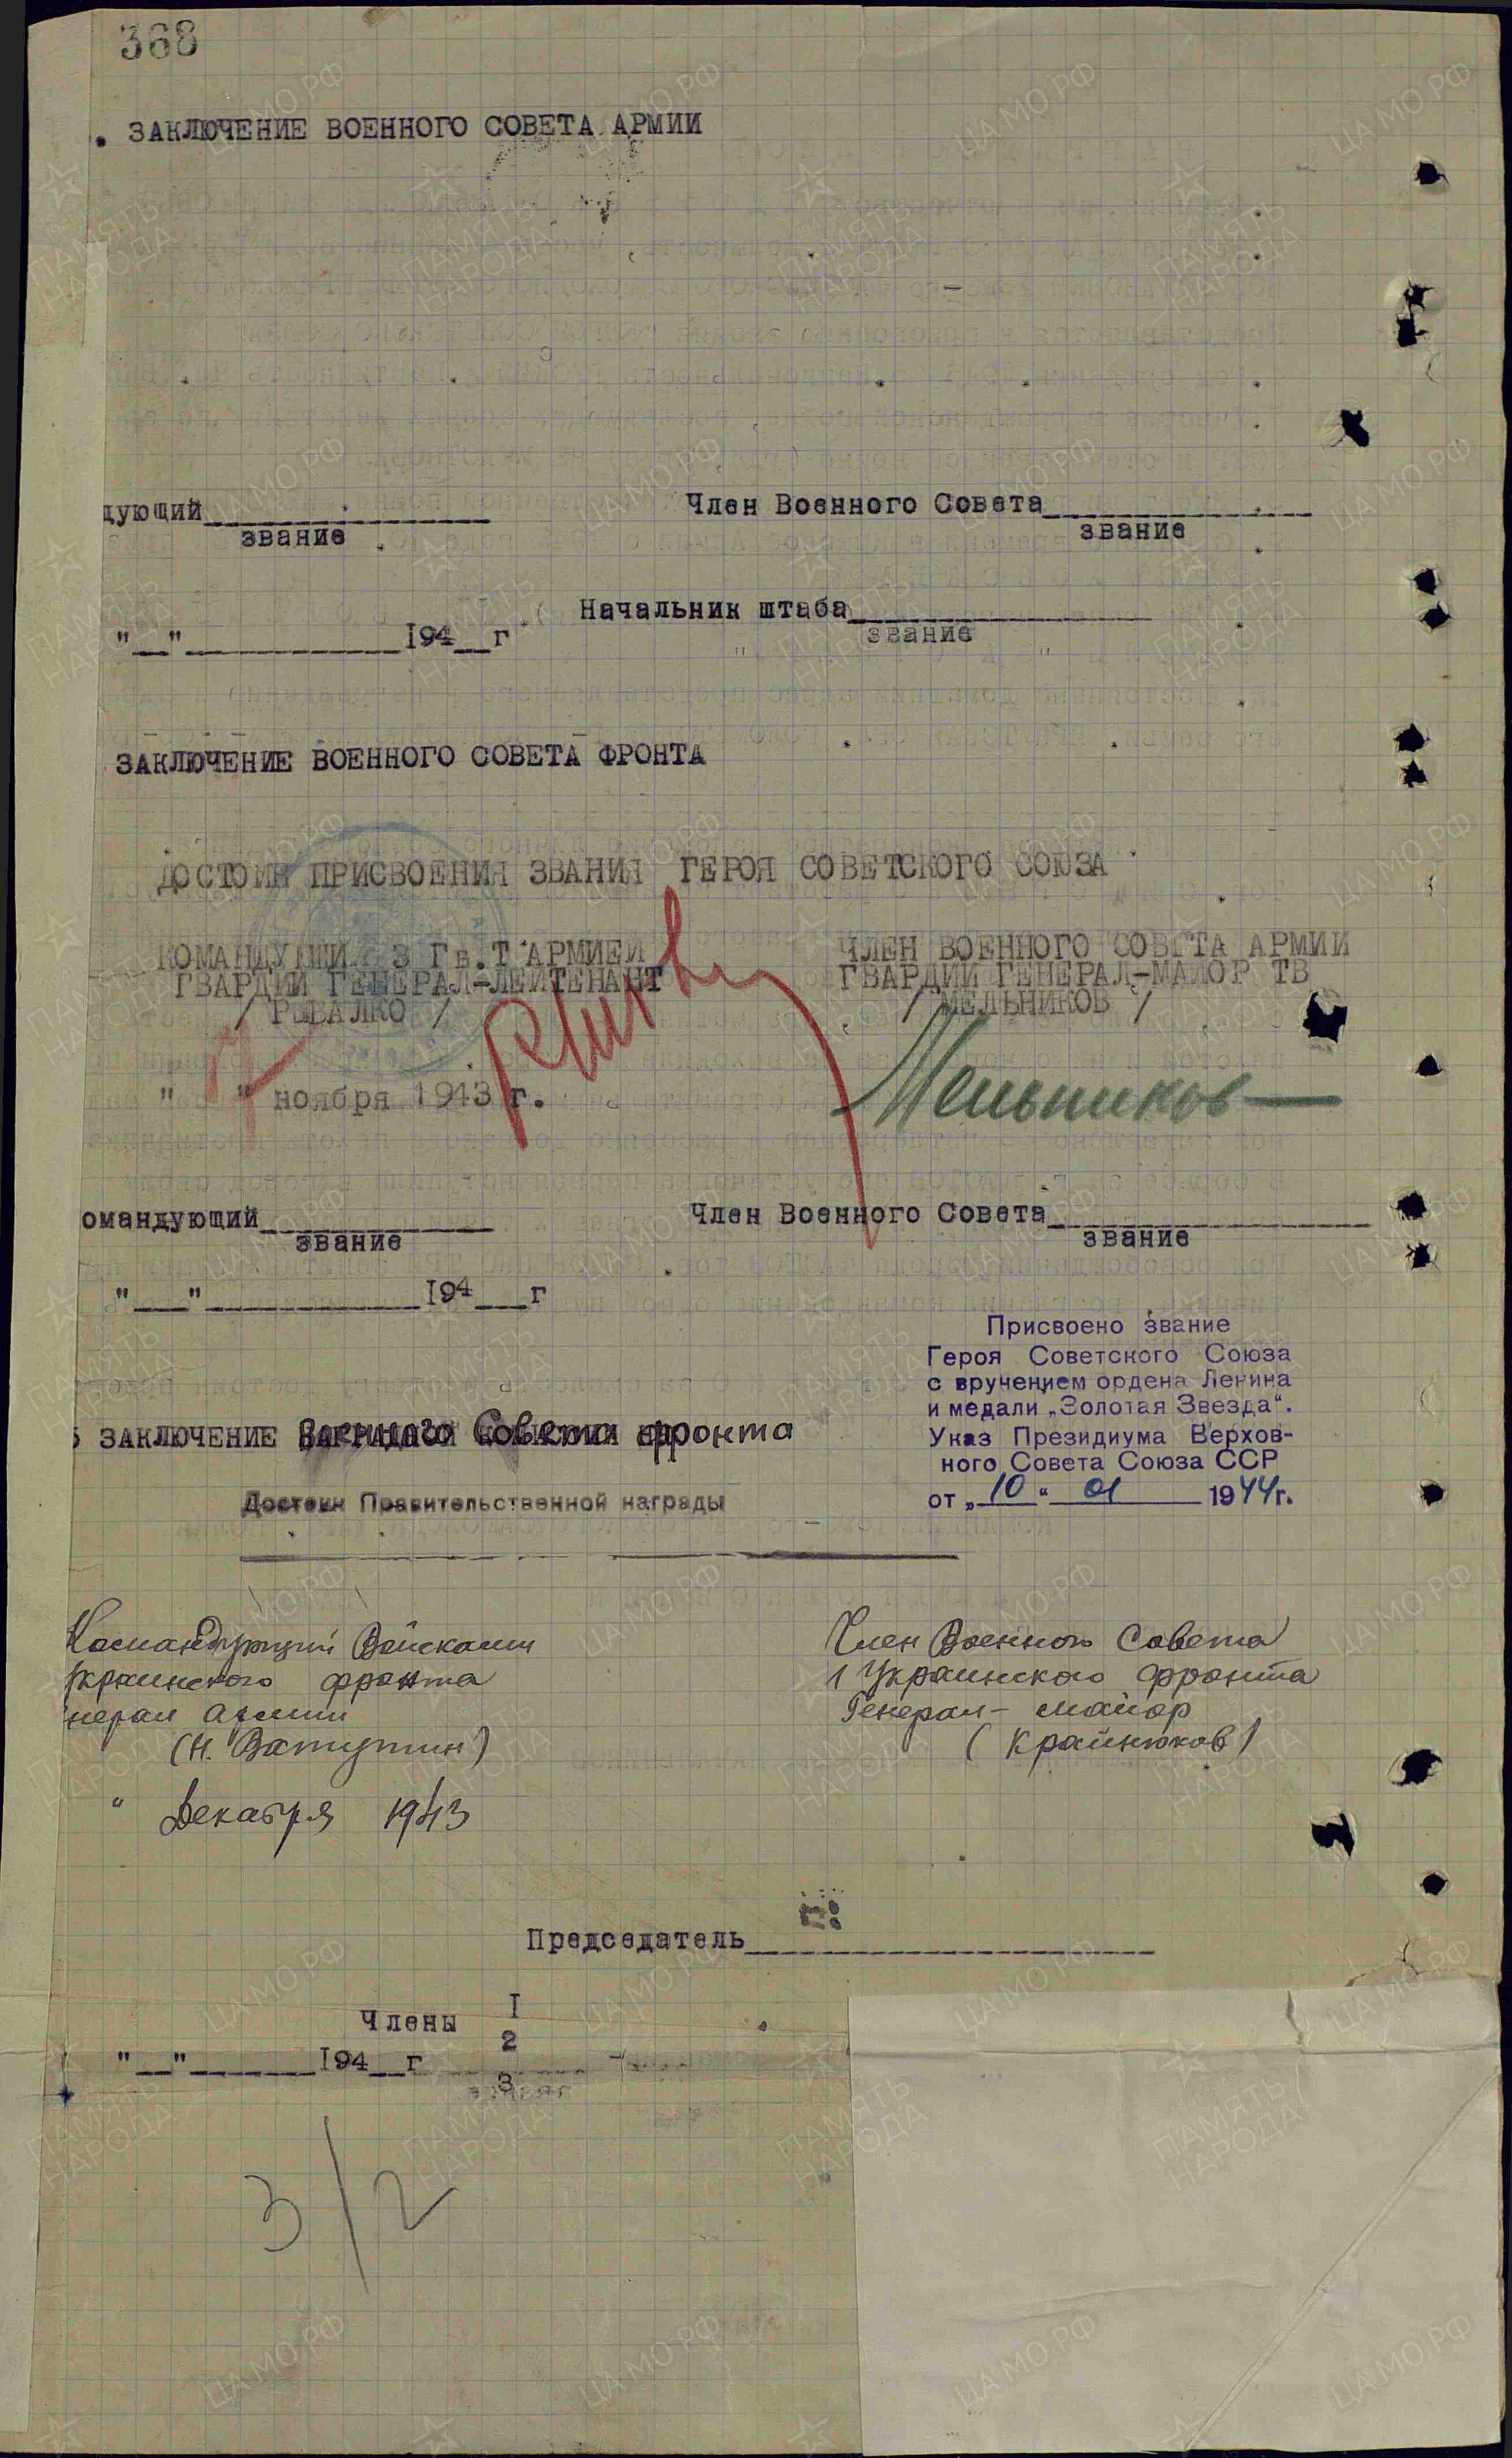 368
. ЗАКЛЮЧЕНИЕ ВОЕННОГО СОВЕТА АРМИИ
дующий____________ Член Военного Совета____________
звание звание
Начальник штаба____________
звание
"__"____________194__г
ЗАКЛЮЧЕНИЕ ВОЕННОГО СОВЕТА ФРОНТА
ДОСТОИН ПРИСВОЕНИЯ ЗВАНИЯ ГЕРОЯ СОВЕТСКОГО СОЮЗА
КОМАНДУЮЩИЙ 3 Гв.Т АРМИЕЙ ЧЛЕН ВОЕННОГО СОВЕТА АРМИИ
ГВАРДИИ ГЕНЕРАЛ-ЛЕЙТЕНАНТ ГВАРДИИ ГЕНЕРАЛ-МАЙОР ТВ
/ РЫБАЛКО / / МЕЛЬНИКОВ /
Мельников
" " ноября 1943 г.
омандующий____________ Член Военного Совета____________
звание звание
"___"____________194___г
Присвоено звание
Героя Советского Союза
с вручением ордена Ленина
и медали „Золотая Звезда".
Указ Президиума Верхов-
ного Совета Союза ССР
от „10" 01 1944г.
ЗАКЛЮЧЕНИЕ Военного Совета фронта
Достоин Правительственной награды
Командующий Войсками Член Военного Совета
Украинского фронта 1 Украинского Фронта
нерал Армии Генерал-майор
(Н. Ватутин) (Крайнюков)
" Декабря 1943
Председатель____________
Члены I
2
"__"________194__г
3
звание
3/2
ПАМЯТЬ НАРОДА
ЦА МО РФ